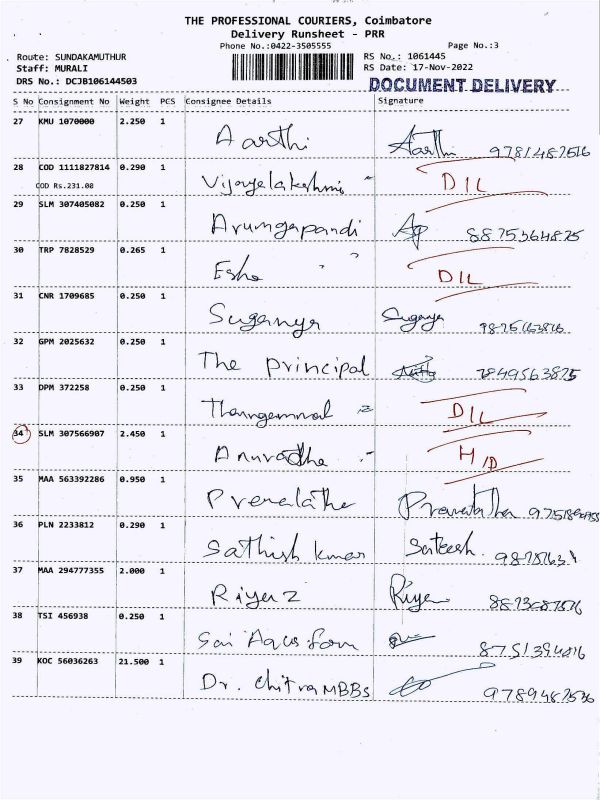 THE PROFESSIONAL COURIERS, Coimbatore
Delivery Runsheet - PRR
Phone No.:0422-3505555 Page No.:3
Route: SUNDAKAMUTHUR RS No.: 1061445
Staff: MURALI RS Date: 17-Nov-2022
DRS No.: DCJB106144503 DOCUMENT DELIVERY
S No Consignment No Weight PCS Consignee Details Signature
27 KMU 1070000 2.250 1 Aarthi Aarthi 9781487516
28 COD 1111827814 0.290 1 Vijayelakshmi DIL
COD Rs.231.00
29 SLM 307405082 0.250 1 Arumgapandi Ap 8875364875
30 TRP 7828529 0.265 1 Esha DIL
31 CNR 1709685 0.250 1 Suganya Suganya
32 GPM 2025632 0.250 1 The principal 7849563875
33 DPM 372258 0.250 1 DIL
34 SLM 307566907 2.450 1 Anuradha H/D
35 MAA 563392286 0.950 1 Premalatha
36 PLN 2233812 0.290 1 Sathish kumar Sateesh.
37 MAA 294777355 2.000 1 Riyaz Riya
38 TSI 456938 0.250 1 Sai
39 KOC 56036263 21.500 1 Dr. Chitra MBBS 9789487536